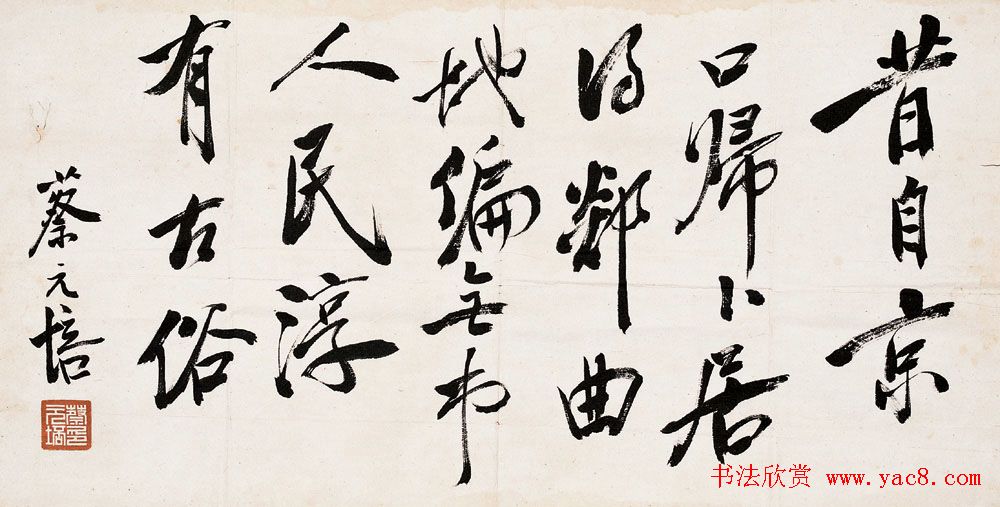 昔自京
口歸卜居
得鄰曲
地偏無市
人民淳
有古俗
蔡元培
蔡印元培
书法欣赏 www.yac8.com